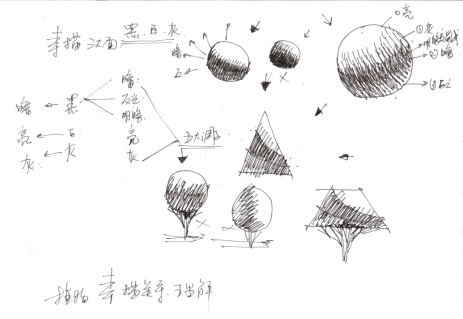 素描三大面 黑、白、灰
亮
①灰
明暗交界线
②暗
暗
暗 黑
暗
反光
明暗
亮 白
亮
灰 灰
灰
五大调子
植物 素描关系 理解